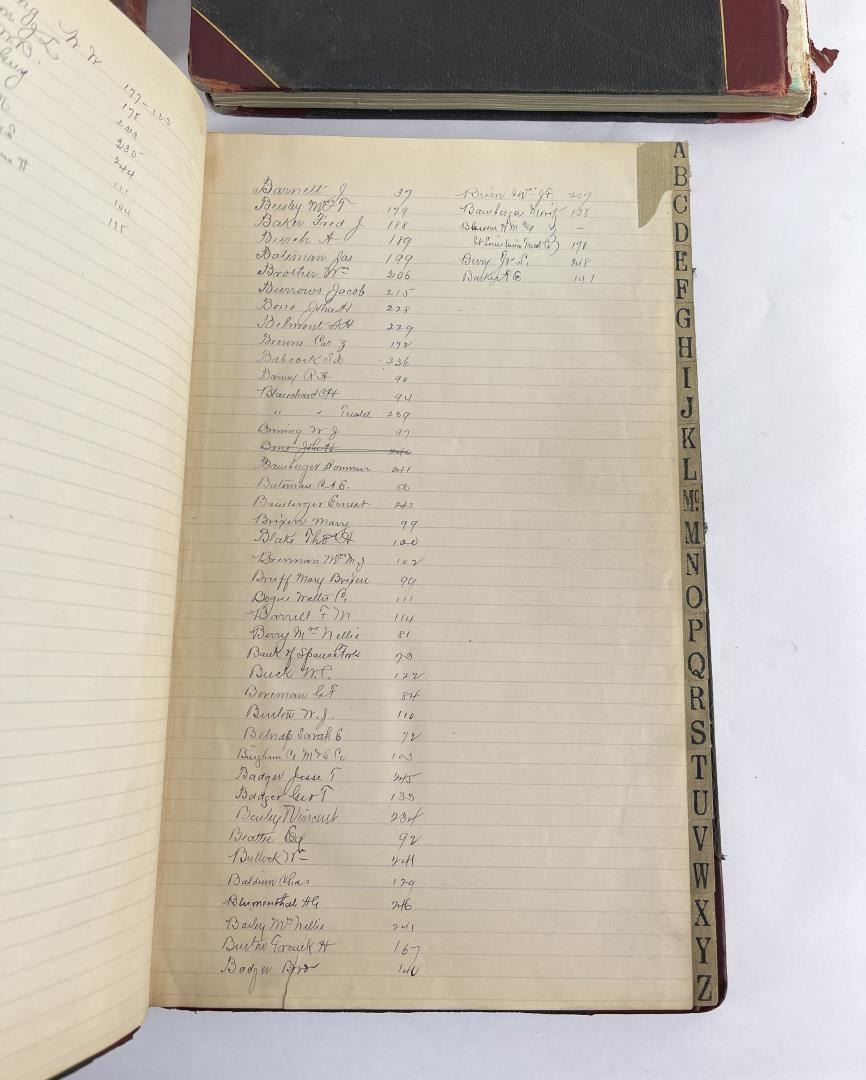 177-183
178
223
235
244
111
144
135
Barnett J 37
Beesley 179
Baker Fred J 188
Burch A 189
Bateman Jas 199
Brother Wm 206
Burrows Jacob 215
Bone John H 228
Belmont 229
Browne 172
Babcock 236
Barney R H 90
Blanchard C H 94
" " 239
W J 97
Bone John H
Bamberger 241
Bateman C A E. 80
Bamberger Ernest 243
Brixen Mary 99
Blake Thos A 100
Brennan Mrs M J 102
Bruff Mary Brixen 99
Bogue Walter C, 111
Barrett F M 114
Berry Mrs Nellie 81
Bank of Spanish Fork 73
Buck W. C. 122
Boreman 84
Burton W. J. 110
Belnap Sarah E 72
Bingham C M & S Co 103
Badger Jesse T 245
Badger Geo T 133
Bailey Vincent 234
Beattie 92
Bullock Wm 244
Baldwin Chas 129
Blumenthal AG 246
Bailey Mrs Nellie 241
Burton Frank H 167
Badger Bros 140
Brim Wm Jr. 207
Bamberger 138
Blossom H M
170
Berry Jno S. 248
Barker 141
A
B
C
D
E
F
G
H
I
J
K
L
Mc
M
N
O
P
Q
R
S
T
U
V
W
X
Y
Z